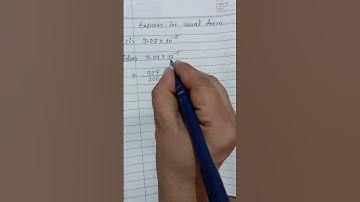 Express in usual form
(i) 3.07 × 10⁻⁵
3.07 × 10⁻⁵
= 307